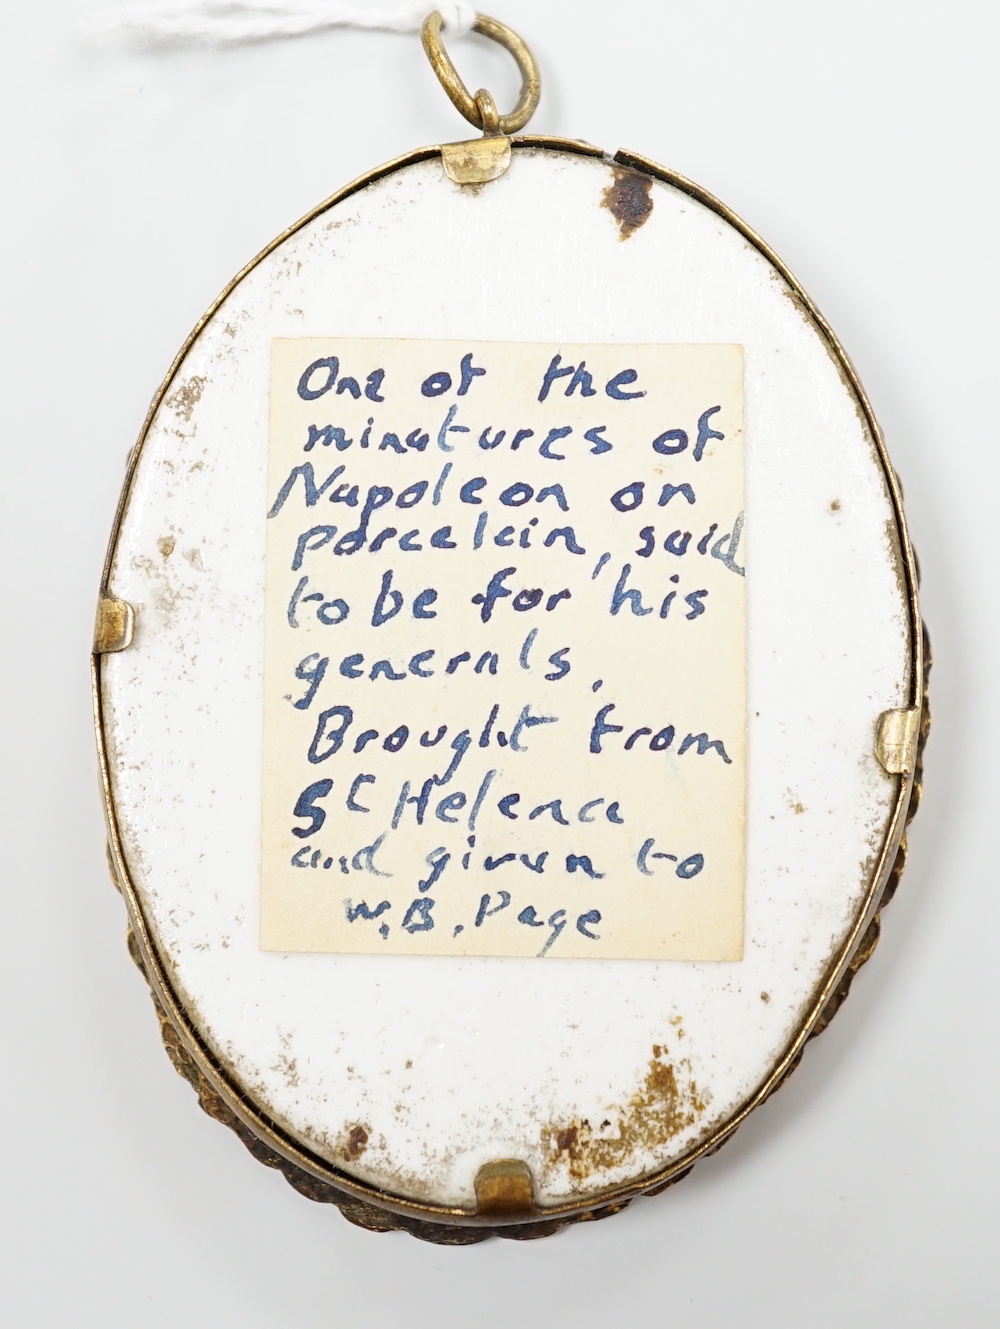 One of the
minatures of
Napoleon on
porcelein, said
to be for his
generals,
Brought from
St Helena
and given to
W.B. Page